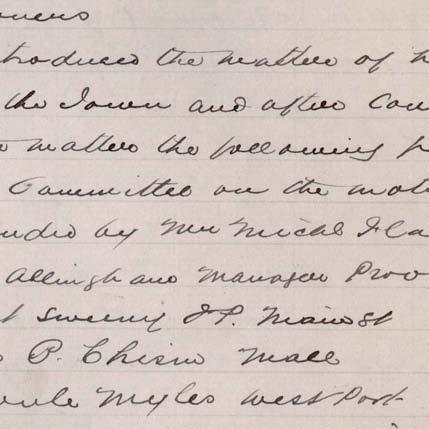 troduced the matter of
the Town and after Con
matter the following
Committee on the mot
nded by Mr Michl Fla
Allingham Manager Prov
t Sweeny J.P. Main St
P. Chism Mall
Myles West Port